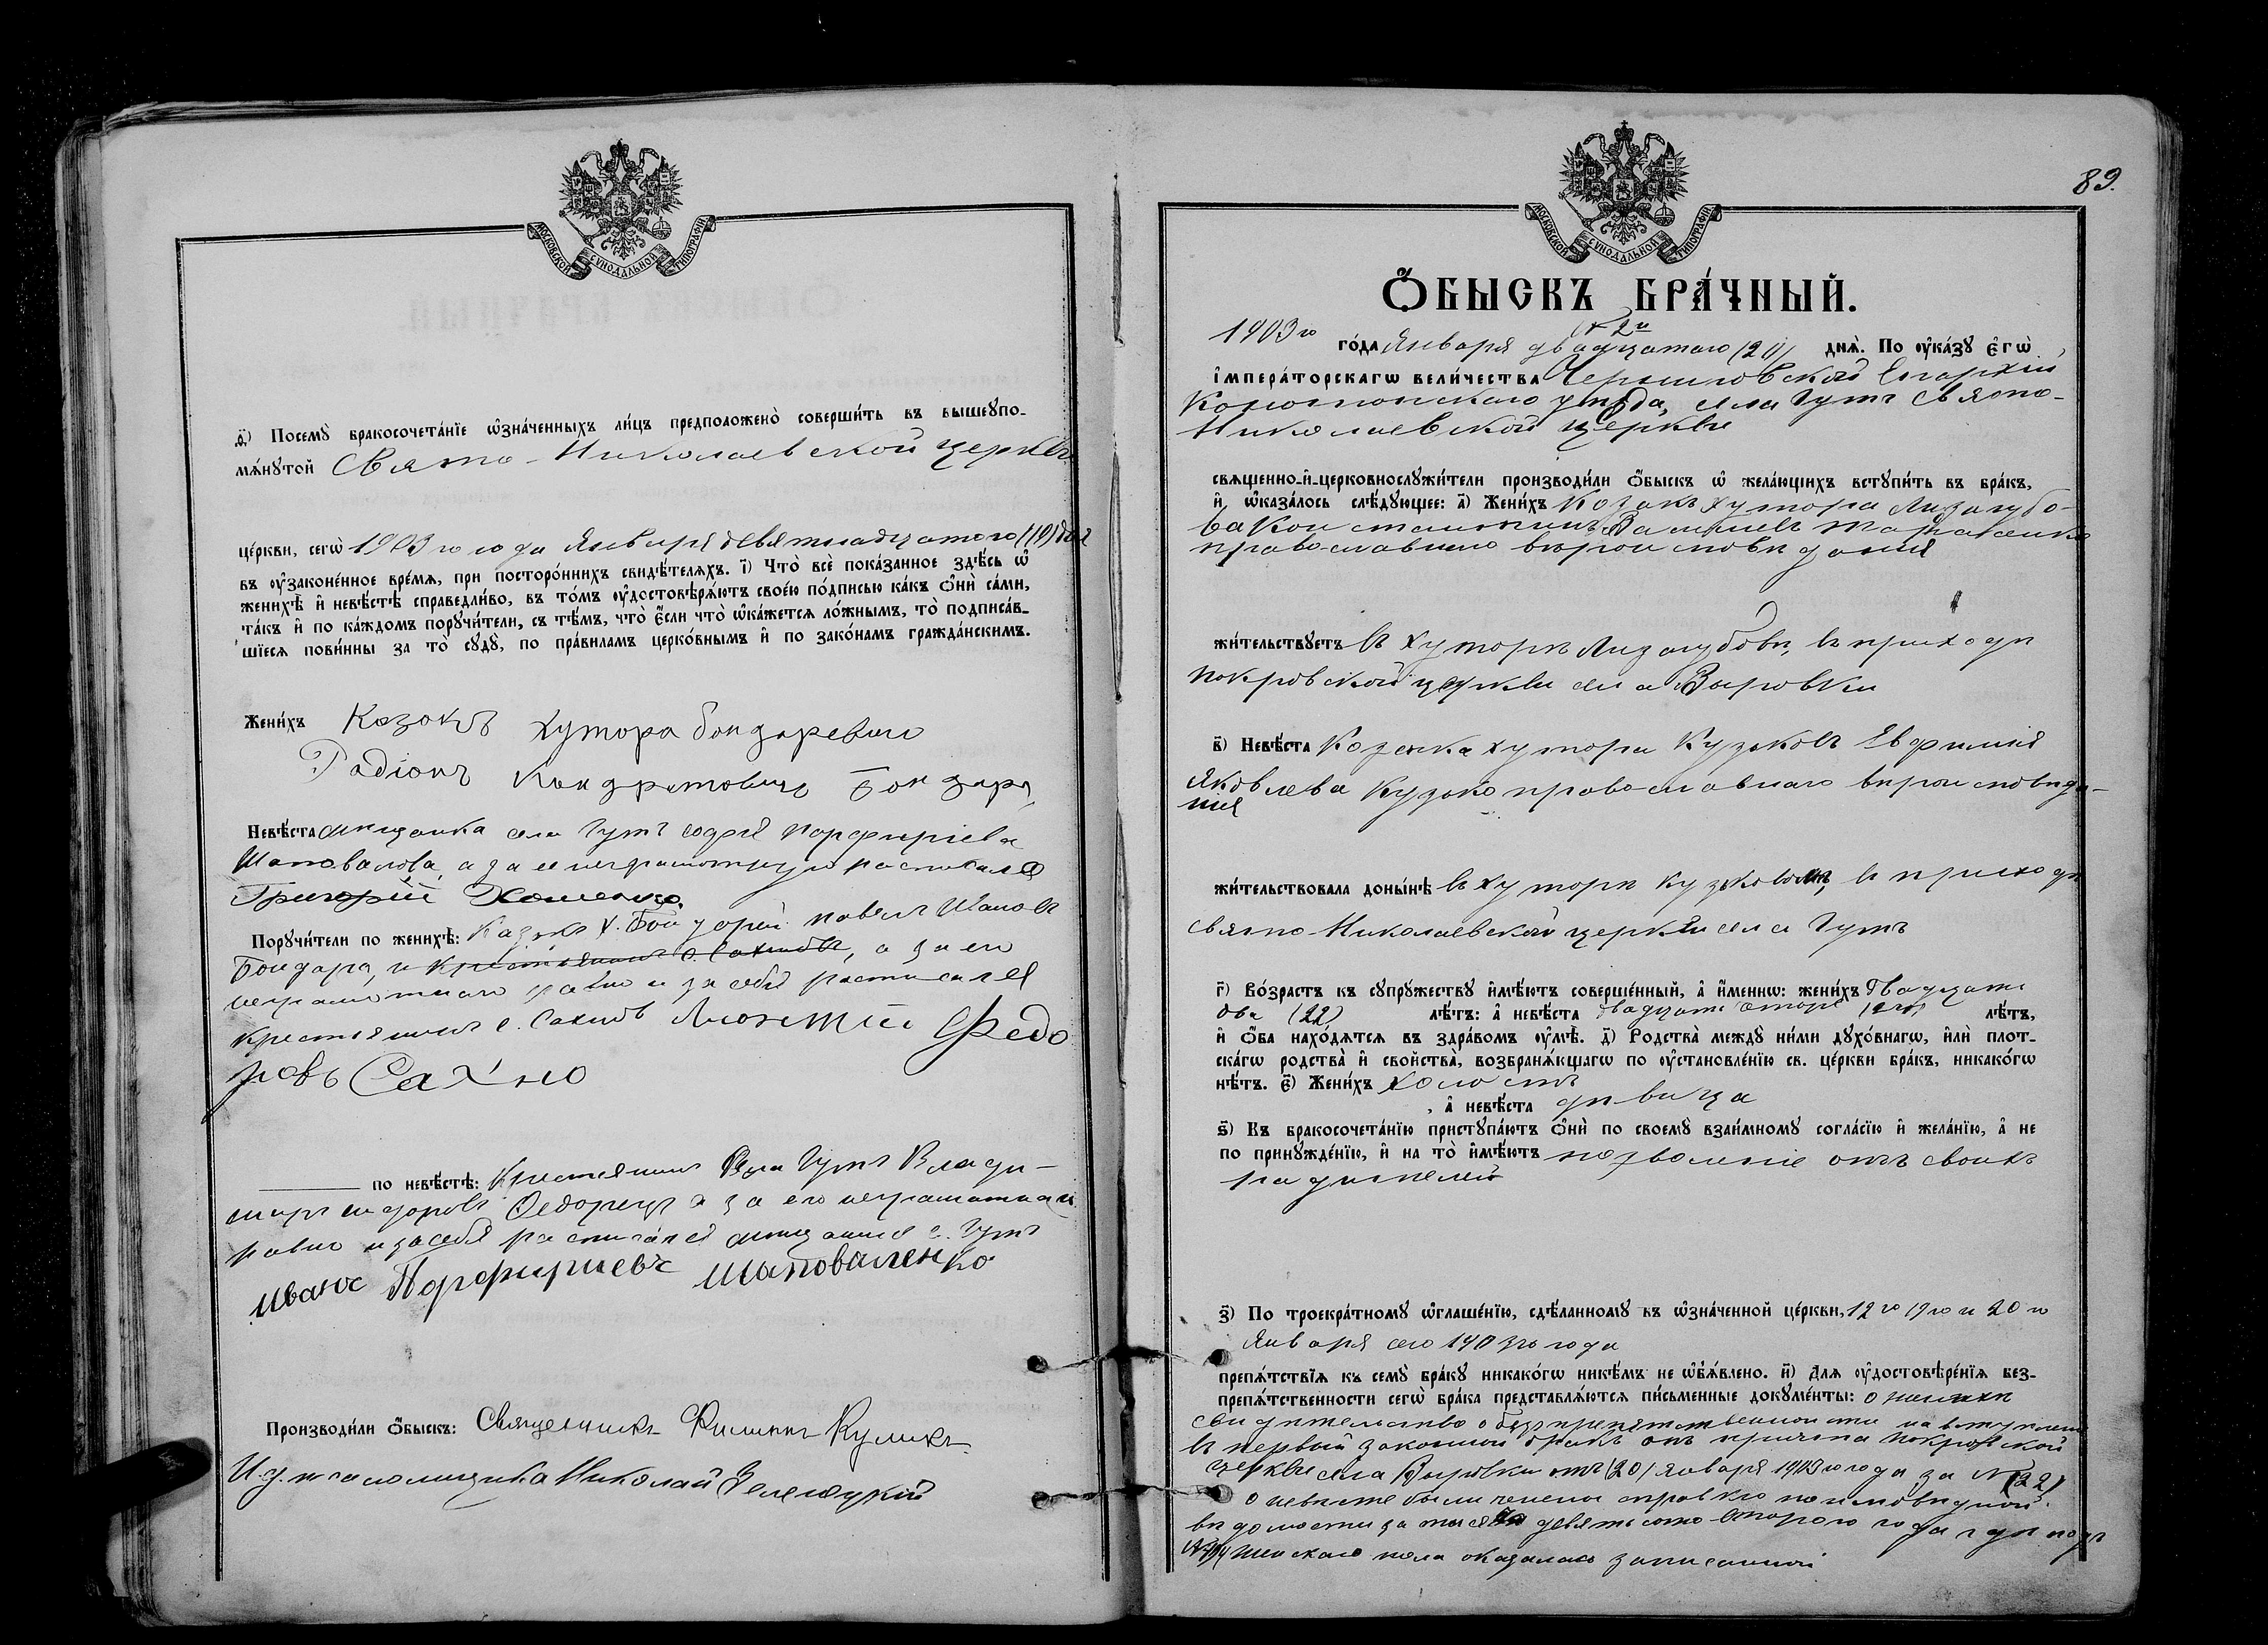 МОСКОВСКОЙ СѴНОДАЛЬНОЙ ТИПОГРАФІИ
ѳ҃) Посемꙋ̀ бракосочета́нїе ѡ҆зна́ченныхъ ли́цъ предположенѡ̀ соверши́ть въ вышеꙋпо-
мѧ́нꙋтой Свято-Николаевской церкви
це́ркви, сегѡ̀ 1903 го года Января девятнадцатого (19) дня
въ ᲂу҆зако́ненное вре́мѧ, при посторо́ннихъ свидѣ́телѧхъ. і҃) Что̀ всѐ пока́занное здѣ́сь ѡ҆
женихѣ̀ и҆ невѣ́стѣ справедли́во, въ то́мъ ᲂу҆достовѣрѧ́ютъ свое́ю по́дписью ка́къ ѻ҆нѝ са́ми,
та́къ и҆ по ка́ждомъ порꙋчи́тели, съ тѣ́мъ, что̀ є҆́сли что̀ ѡ҆ка́жетсѧ ло́жнымъ, то̀ подписа́в-
шїесѧ пови́нны за то̀ сꙋдꙋ̀, по пра́виламъ церко́внымъ и҆ по зако́намъ гражда́нскимъ.
Жени́хъ Козакъ хутора Бондаревого
Радіонъ Кондратовичъ Бондарь
Невѣ́ста мещанка села Гутъ Софія Порфиріева
Шаповалова, а за ее неграмотную росписался
Григорій Хоменко.
Порꙋчи́тели по женихѣ̀: Казакъ х. Бондарей Павелъ
Бондарь, и крестьянинъ с. Сахновъ, а за его
неграмотного равно и за себя росписался
крестьянинъ с. Сахновъ Леонтій Федо
ровъ Сахно
по невѣ́стѣ: Крестьянинъ села Гутъ Влади-
миръ Федорецъ а за его неграмотнаго
равно и за себя росписался мещанинъ с. Гутъ
Иванъ Порфириевъ Шаповаленко
Производи́ли ѻ҆́быскъ: Священникъ Филиппъ Куликъ
И. д. псаломщика Николай Зеленецкій
89.
МОСКОВСКОЙ СѴНОДАЛЬНОЙ ТИПОГРАФІИ
Ѻ҆́БЫСКЪ БРА́ЧНЫЙ.
№ 2й
1903 го го́да Января двадцатого (20) днѧ̀. По ᲂу҆ка́зꙋ є҆гѡ̀
і҆мпера́торскагѡ вели́чества Черниговской Епархіи,
Конотопского уѣзда, села Гутъ Свято-
Николаевской церкви
свѧщенно-и҆-церковнослꙋжи́тели производи́ли ѻ҆́быскъ ѡ҆ жела́ющихъ встꙋпи́ть въ бра́къ,
и҆ ѡ҆каза́лось слѣ́дꙋющее: а҃) Жени́хъ Козакъ хутора Лизогубо-
ва Константинъ
православного вѣроисповѣданія
жи́тельствꙋетъ въ хуторѣ Лизогубовѣ, въ приходѣ
Покровской церкви села Вировки
в҃) Невѣ́ста Козачка хутора Кузьковъ Евфимія
Яковлева Кузько православнаго вѣроисповѣда-
нія
жи́тельствовала доны́нѣ въ хуторѣ Кузьковомъ, въ приходѣ
Свято-Николаевской церкви села Гутъ
г҃) Во́зрастъ къ сꙋпрꙋ́жествꙋ и҆мѣ́ютъ соверше́нный, а҆ и҆́меннѡ: жени́хъ Двадцати
два (22) лѣ́тъ: а҆ невѣ́ста двадцати лѣ́тъ,
и҆ ѻ҆́ба нахо́дѧтсѧ въ здра́вомъ ᲂу҆мѣ̀. д҃) Родства̀ междꙋ̀ ни́ми дꙋхо́внагѡ, и҆лѝ плот-
ска́гѡ родства̀ и҆ свойства̀, возбранѧ́ющагѡ по ᲂу҆становле́нїю св. це́ркви бра́къ, никако́гѡ
нѣ́тъ. є҃) Жени́хъ холостъ
, а҆ невѣ́ста дѣвица
ѕ҃) Къ бракосочета́нїю пристꙋпа́ютъ ѻ҆нѝ по своемꙋ̀ взаи́мномꙋ согла́сїю и҆ жела́нїю, а҆ не
по принꙋжде́нїю, и҆ на то̀ и҆мѣ́ютъ позволеніе отъ своихъ
родителей
з҃) По троекра́тномꙋ ѡ҆глаше́нїю, сдѣ́ланномꙋ въ ѡ҆зна́ченной це́ркви, 12 го 19 го и 20 го
Января сего 1903 го года
препѧ́тствїѧ къ семꙋ̀ бра́кꙋ никако́гѡ никѣ́мъ не ѡ҆б̾ѧ́влено. и҃) Длѧ ᲂу҆достовѣре́нїѧ без-
препѧ́тственности сегѡ̀ бра́ка представлѧ́ютсѧ пи́сьменные докꙋме́нты: о женихѣ
свидѣтельство о безпрепятственности на вступленіе
въ первый законный бракъ отъ причта Покровской
церкви села Вировки отъ (20) января 1903 го года за № (22)
о невѣсте справкою по исповѣдной
вѣдомости за тысяча девятьсотъ второго года гдѣ подъ
№ женскаго пола оказалась записанной